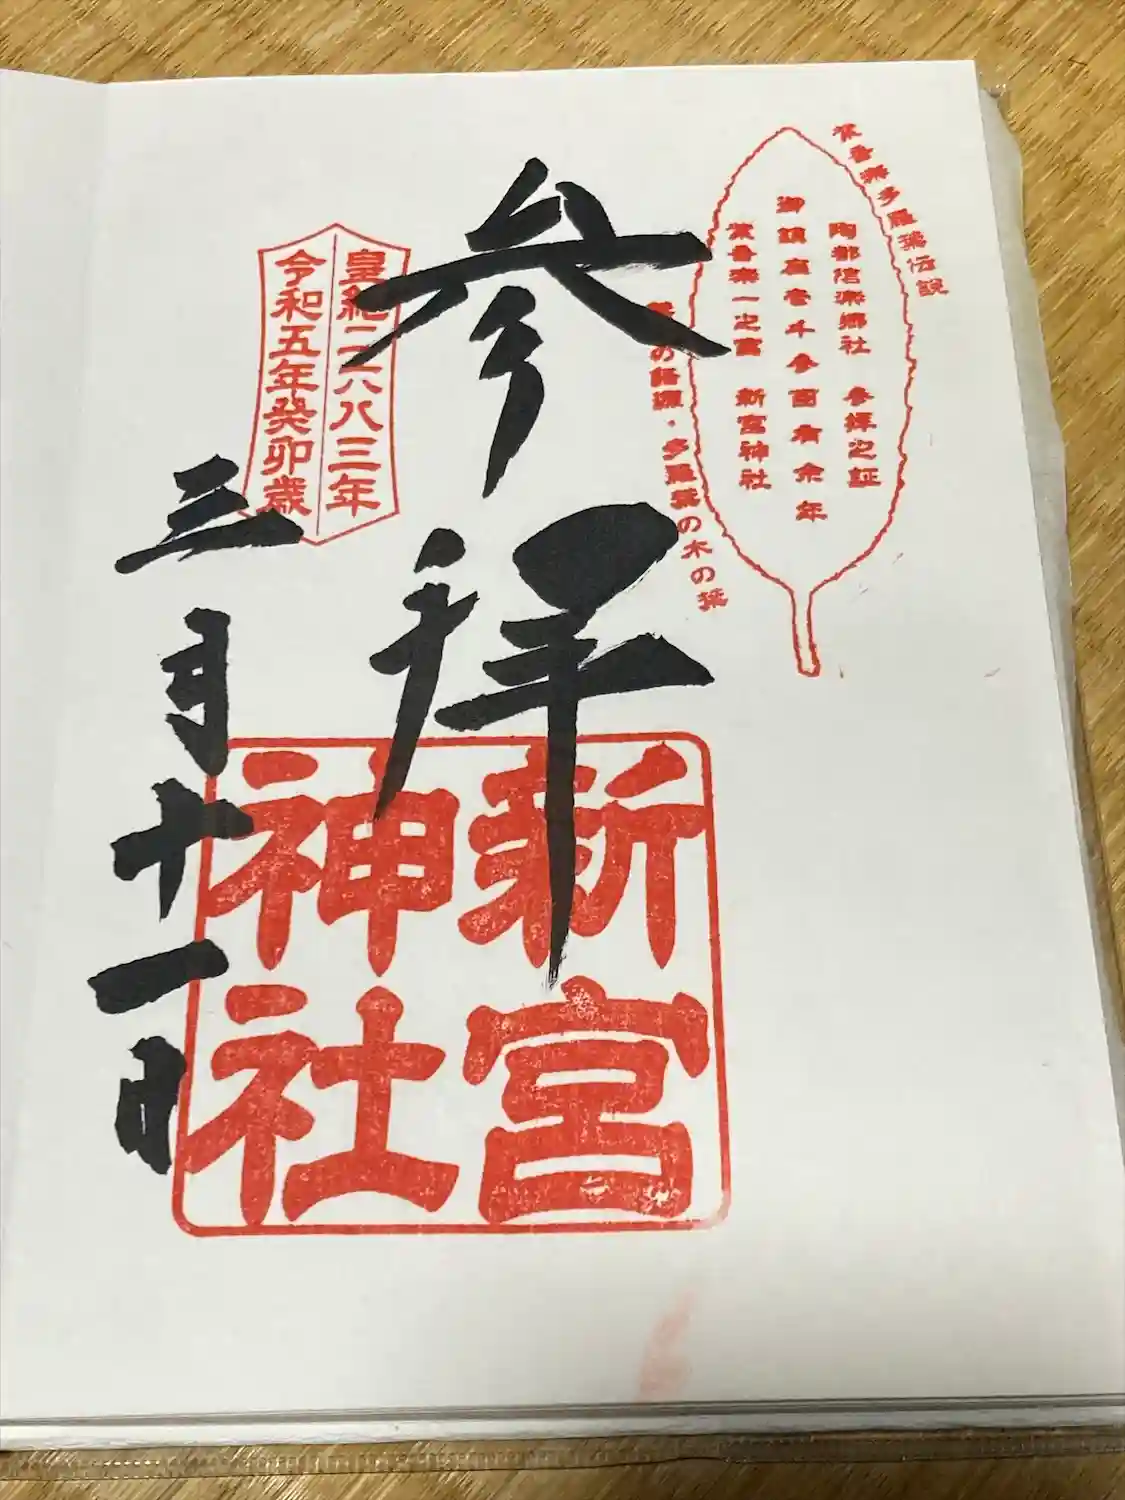 紫香楽多羅葉伝説
陶都信楽郷社 参拝之証
御鎮座壱千参百有余年
紫香楽一之宮 新宮神社
の語源・多羅葉の木の葉
参拝
皇紀二六八三年
令和五年癸卯歳
三月十一日
新宮
神社